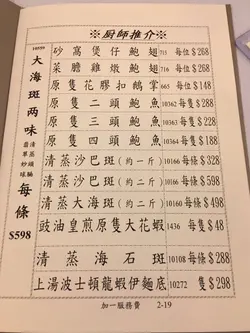 ※厨師推介※
10559 大海斑两味 清蒸頭腩 翡翠炒球 每條 $598
砂窩煲仔鮑翅 715 每位$268
菜膽雞燉鮑翅 765 每位$148
原隻花膠扣鵝掌 665 每位$148
原隻二頭鮑魚 10362 每隻$288
原隻三頭鮑魚 10363 每隻$188
原隻四頭鮑魚 10364 每隻$158
清蒸沙巴斑(約一斤) 10166 每條$328
清蒸沙巴斑(約二斤) 10325 每條$598
清蒸大海斑(約二斤) 10160 每條$498
豉油皇煎原隻大花蝦 1436 每隻$48
清蒸海石斑 10108 每條$288
上湯波士頓龍蝦伊麵底 10272 隻$298
加一服務費 2-19